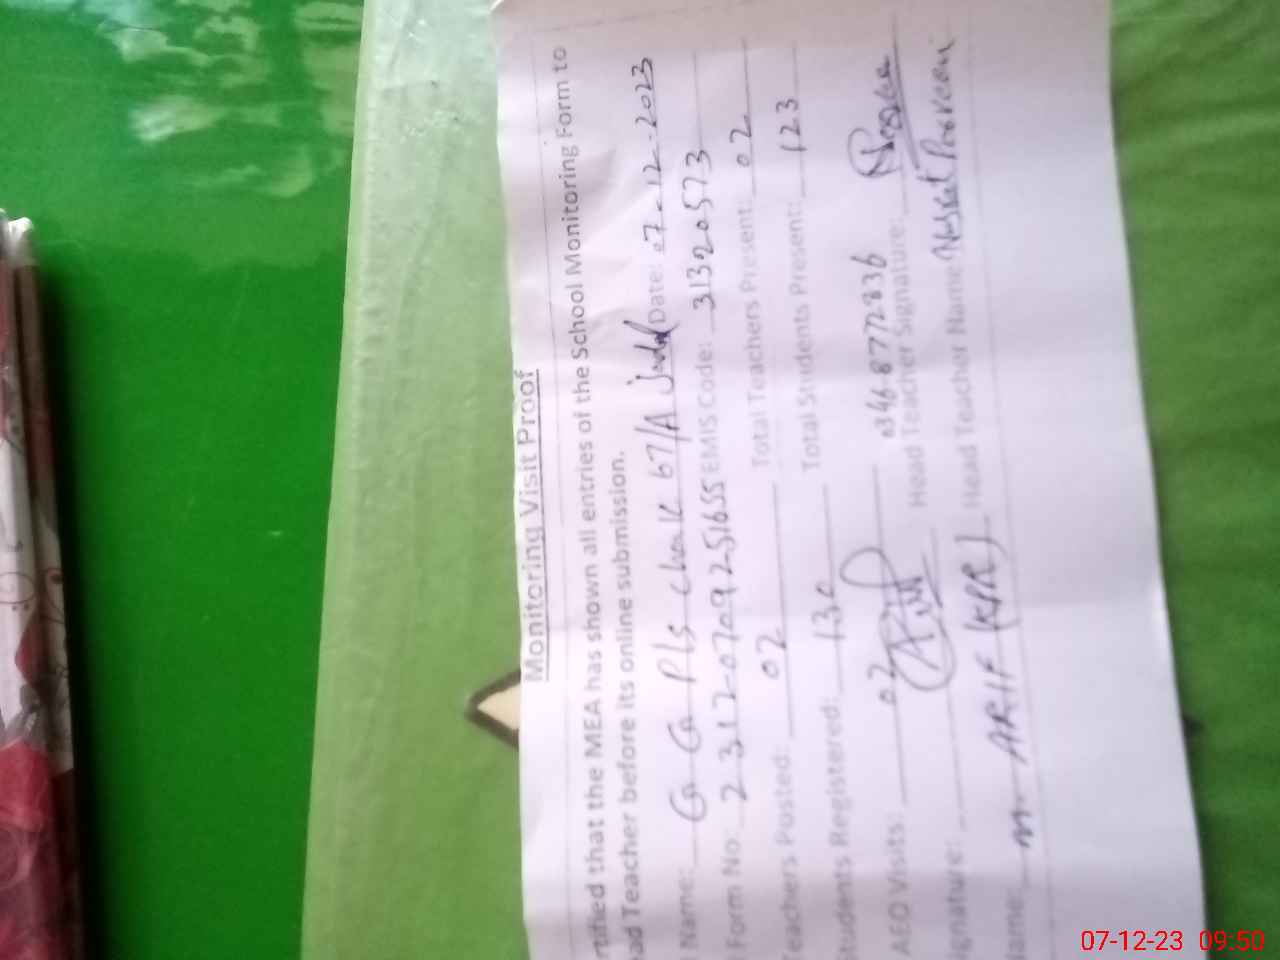 Monitoring Visit Proof
rtified that the MEA has shown all entries of the School Monitoring Form to
ad Teacher before its online submission.
l Name: G G P/s chak 67/A Date: 07-12-2023
Form No: 23120709251655 EMIS Code: 31320573
eachers Posted: 02 Total Teachers Present: 02
Students Registered: 130 Total Students Present: 123
AEO Visits: 02 03468772836
ignature: Head Teacher Signature:
Name: M. ARIF (KPR) Head Teacher Name Parveen
07-12-23 09:50